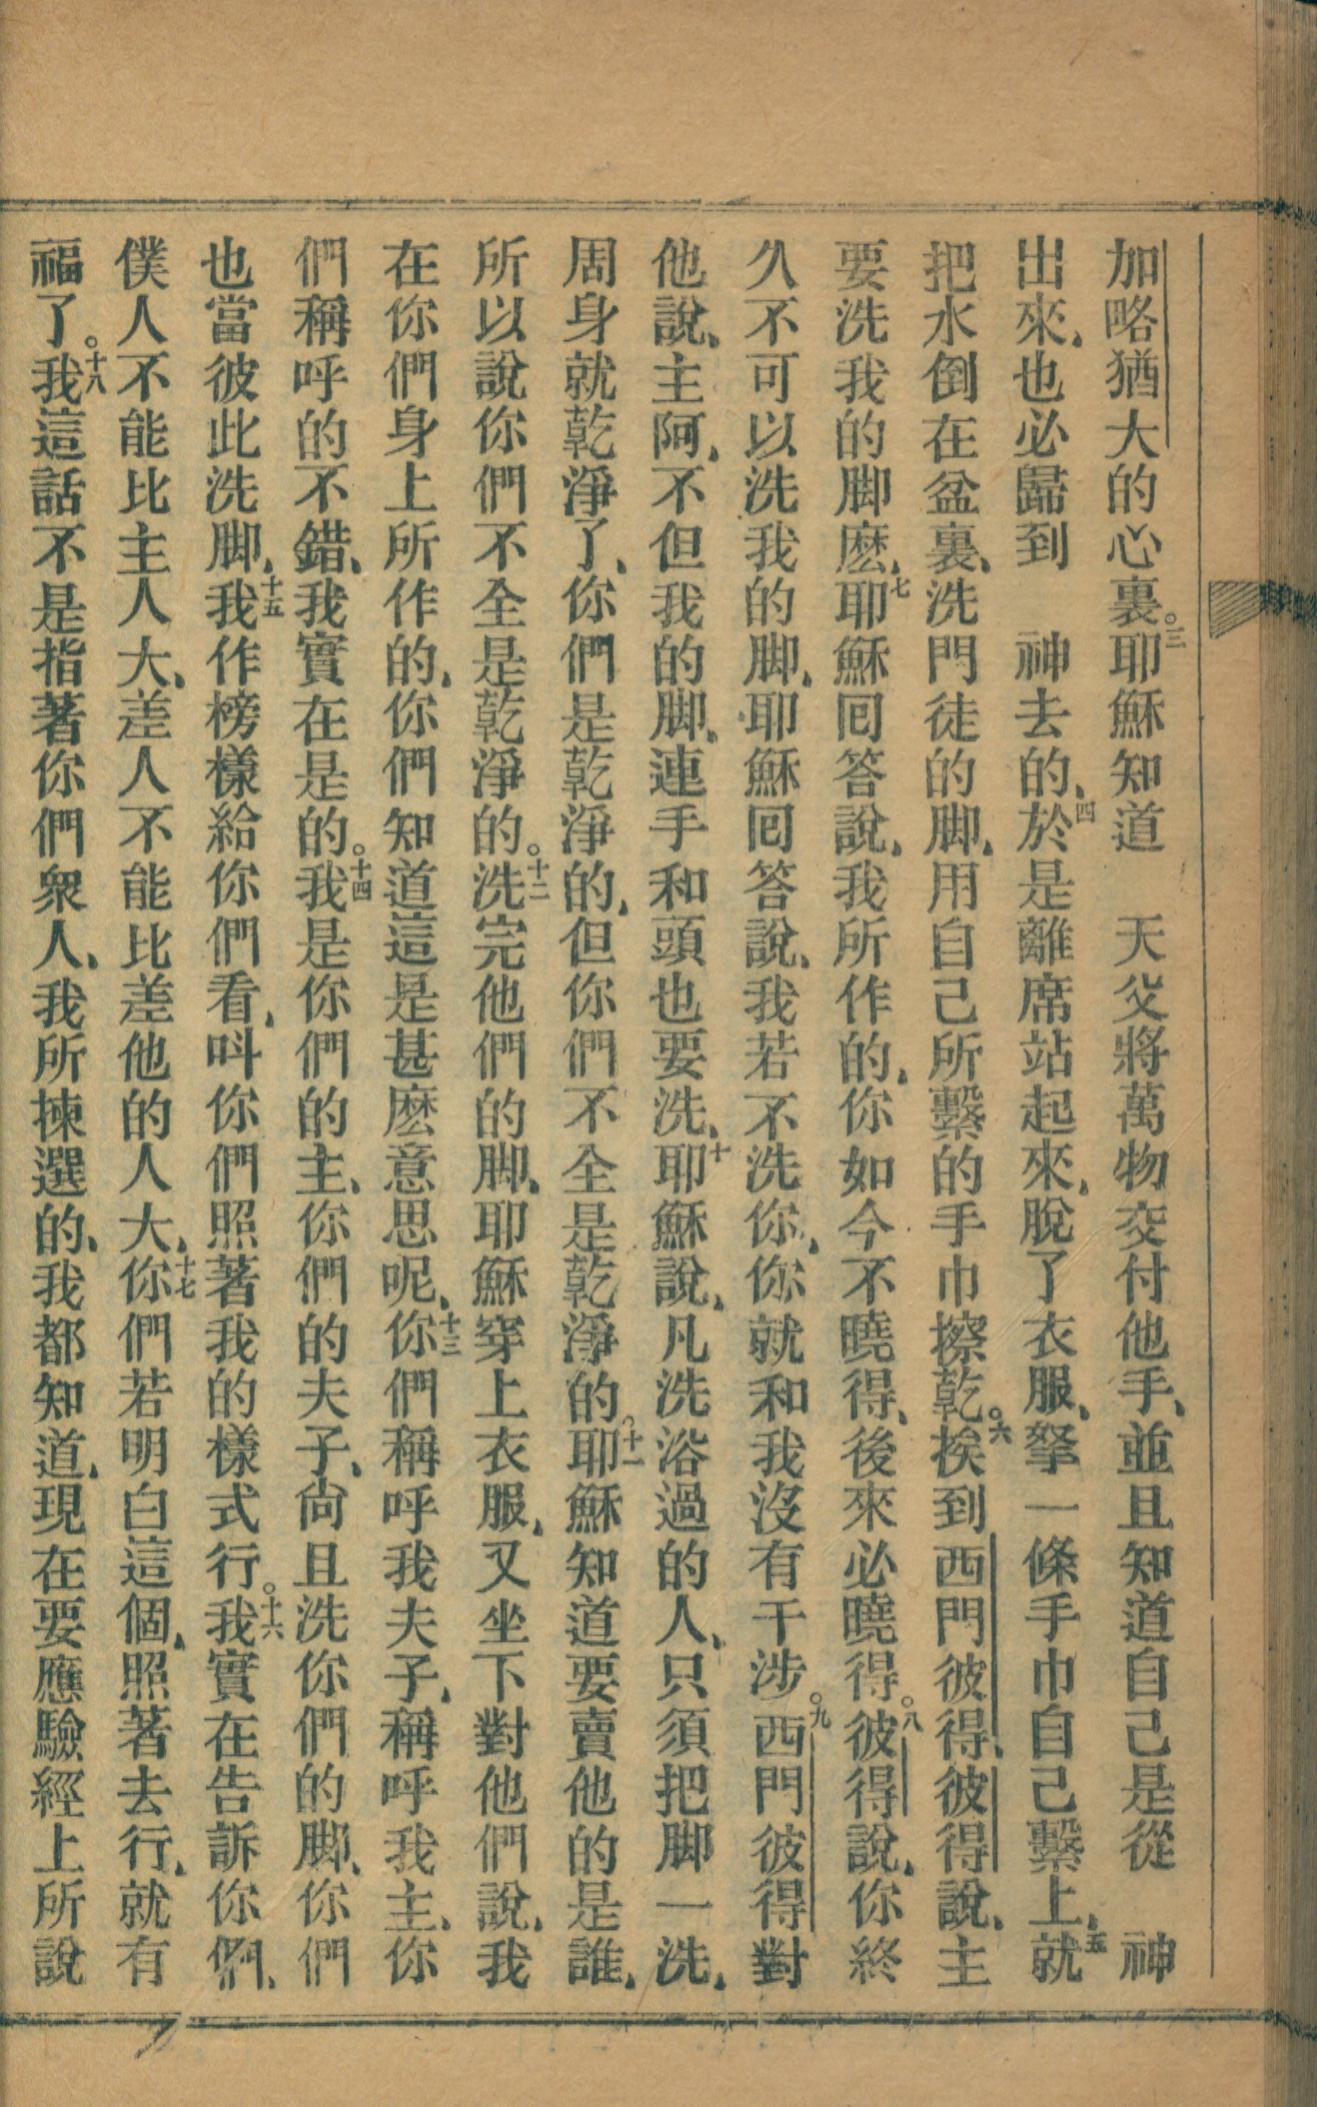 加略猶大的心裏。三耶穌知道　天父將萬物交付他手、並且知道自己是從　神
出來、也必歸到　神去的、四於是離席站起來、脫了衣服、拏一條手巾自己繫上、五就
把水倒在盆裏、洗門徒的脚、用自己所繫的手巾擦乾。六挨到西門彼得、彼得說、主
要洗我的脚麽、七耶穌回答說、我所作的、你如今不曉得、後來必曉得。八彼得說、你終
久不可以洗我的脚、耶穌回答說、我若不洗你、你就和我沒有干涉。九西門彼得對
他說、主阿、不但我的脚、連手和頭也要洗、十耶穌說、凡洗浴過的人、只須把脚一洗、
周身就乾淨了、你們是乾淨的、但你們不全是乾淨的。十一耶穌知道要賣他的是誰、
所以說你們不全是乾淨的。十二洗完他們的脚、耶穌穿上衣服、又坐下對他們說、我
在你們身上所作的、你們知道這是甚麽意思呢、十三你們稱呼我夫子、稱呼我主、你
們稱呼的不錯、我實在是的。十四我是你們的主、你們的夫子、尙且洗你們的脚、你們
也當彼此洗脚、十五我作榜樣給你們看、呌你們照著我的樣式行。十六我實在告訴你們、
僕人不能比主人大、差人不能比差他的人大、十七你們若明白這個、照著去行、就有
福了。十八我這話不是指著你們衆人、我所揀選的、我都知道、現在要應驗經上所說